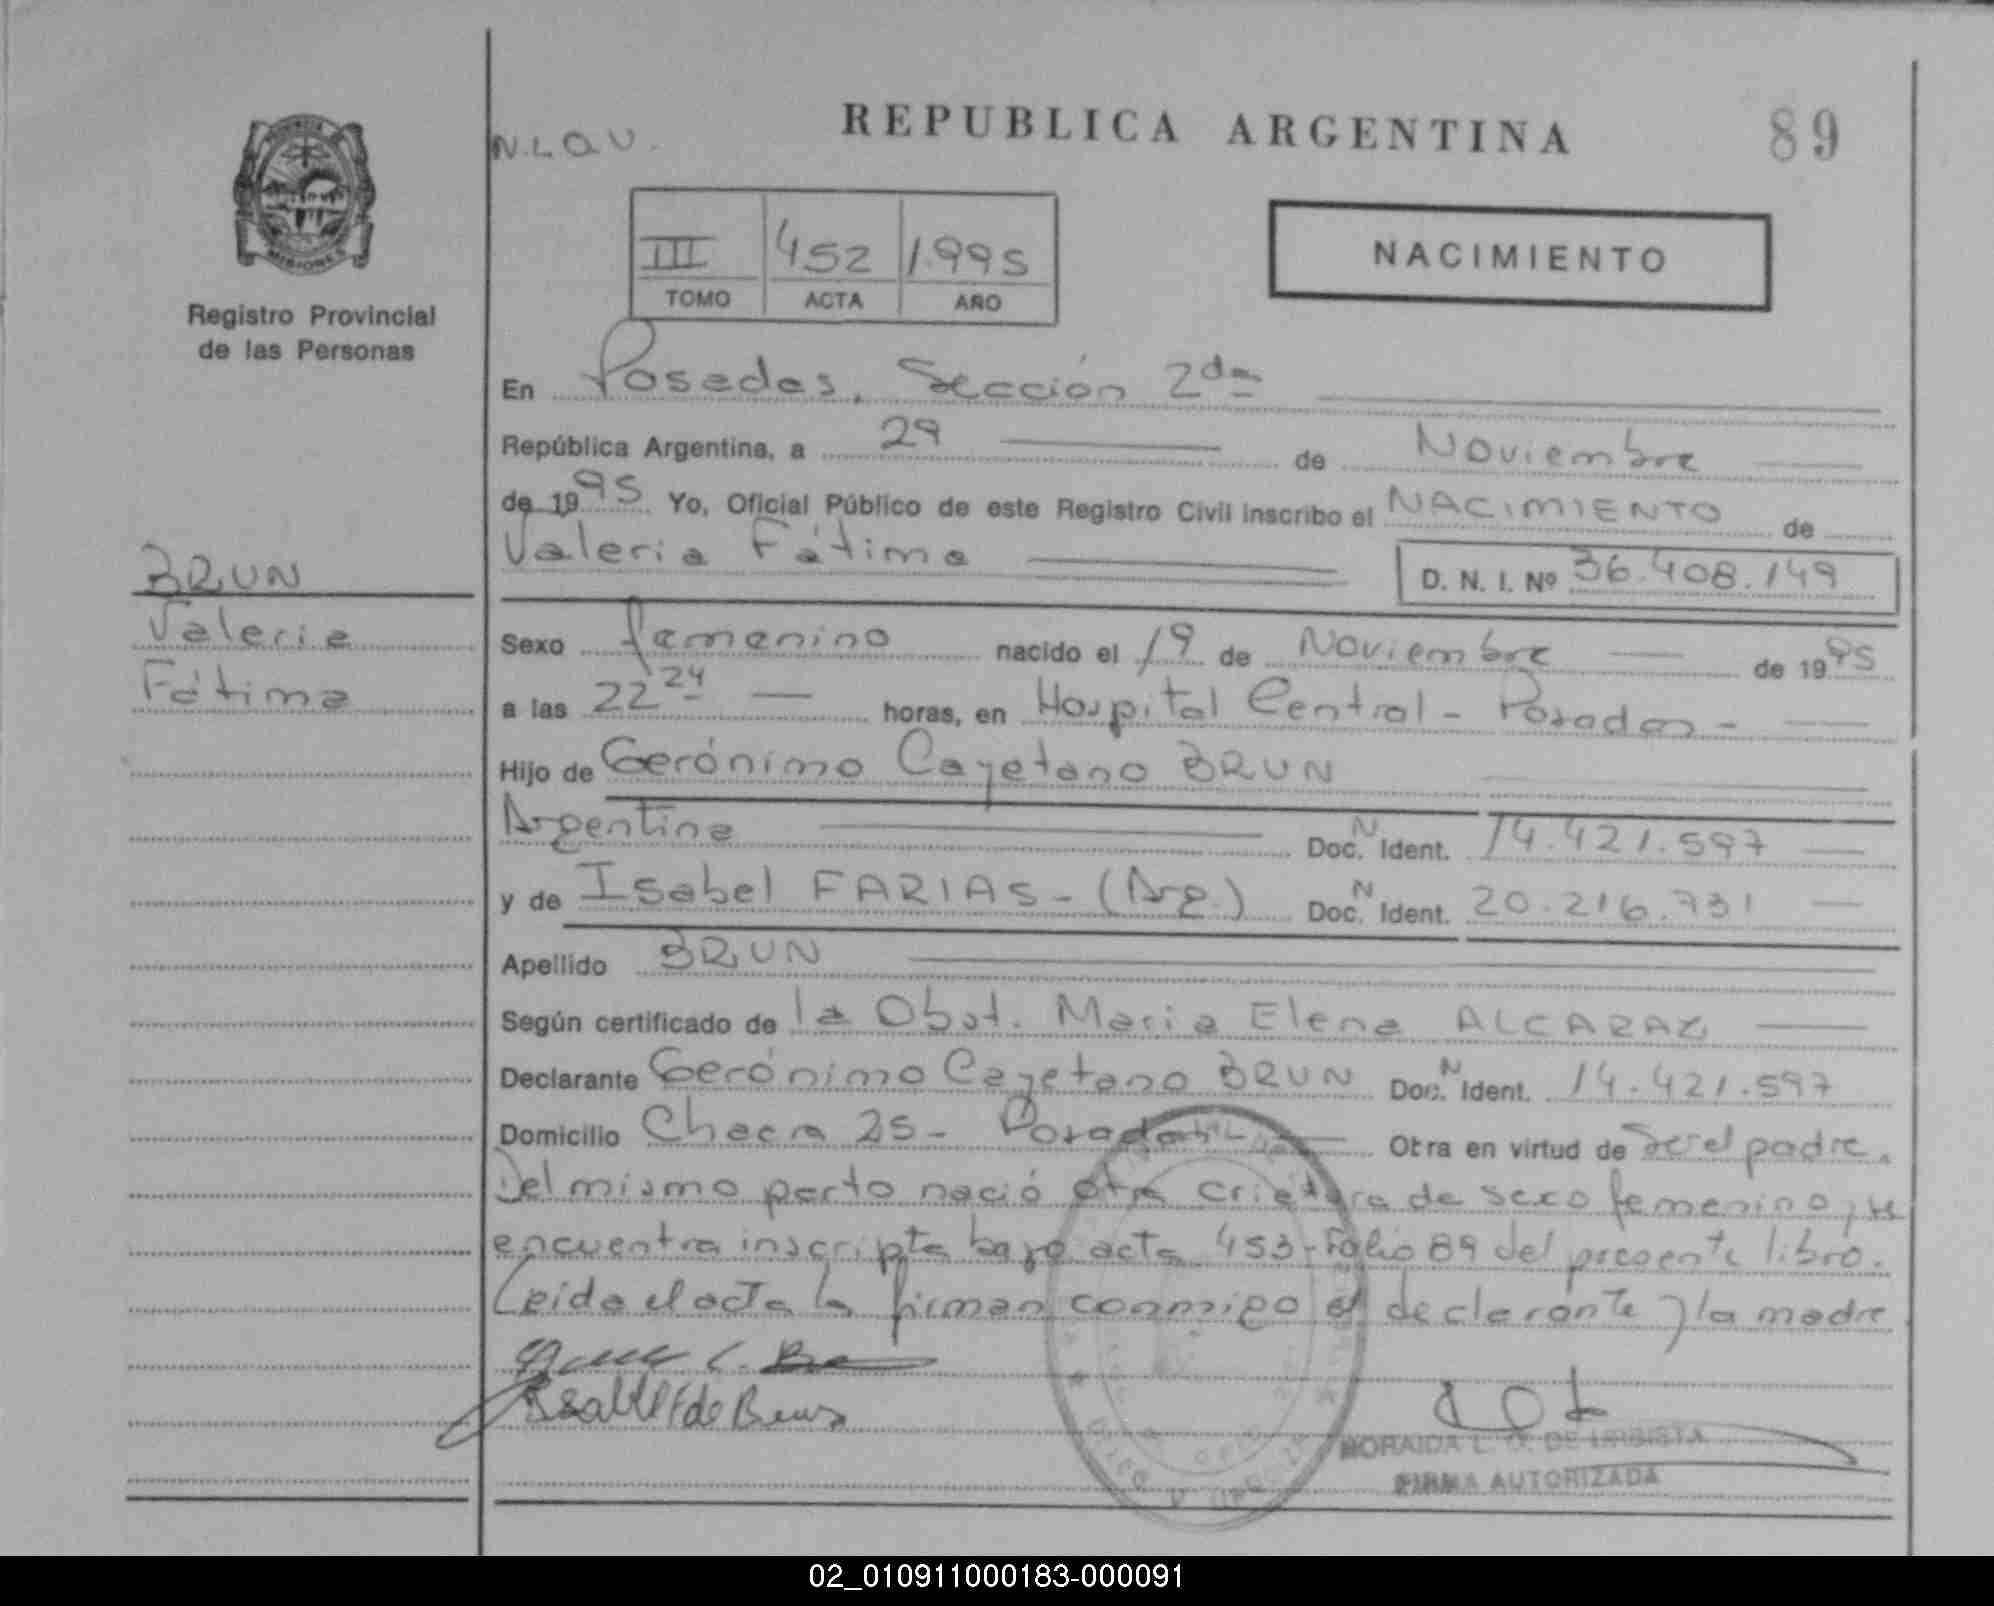 REPUBLICA ARGENTINA
89
N.L.Q.U.
III 452 1.995
TOMO ACTA AÑO
NACIMIENTO
MISIONES
Registro Provincial
de las Personas
BRUN
Valeria
Fátima
En Posadas, Sección 2da
República Argentina, a 29 de Noviembre
de 1995 Yo, Oficial Público de este Registro Civil inscribo el NACIMIENTO de
Valeria Fátima D. N. I. Nº 36.408.149
Sexo femenino nacido el 19 de Noviembre de 1995
a las 22 24 horas, en Hospital Central - Posadas -
Hijo de Gerónimo Cayetano BRUN
Argentina Doc. N Ident. 14.421.597
y de Isabel FARIAS - (Arg.) Doc. N Ident. 20.216.731
Apellido BRUN
Según certificado de la Obst. Maria Elena ALCARAZ
Declarante Gerónimo Cayetano BRUN Doc. N Ident. 14.421.597
Domicilio Chacra 25 - Posadas Otra en virtud de Ser el padre.
Del mismo parto nació otra criatura de sexo femenino, se
encuentra inscripta bajo acta 453 - Folio 89 del presente libro.
Leida el acta la firman conmigo el declarante y la madre
FIRMA AUTORIZADA
02_010911000183-000091